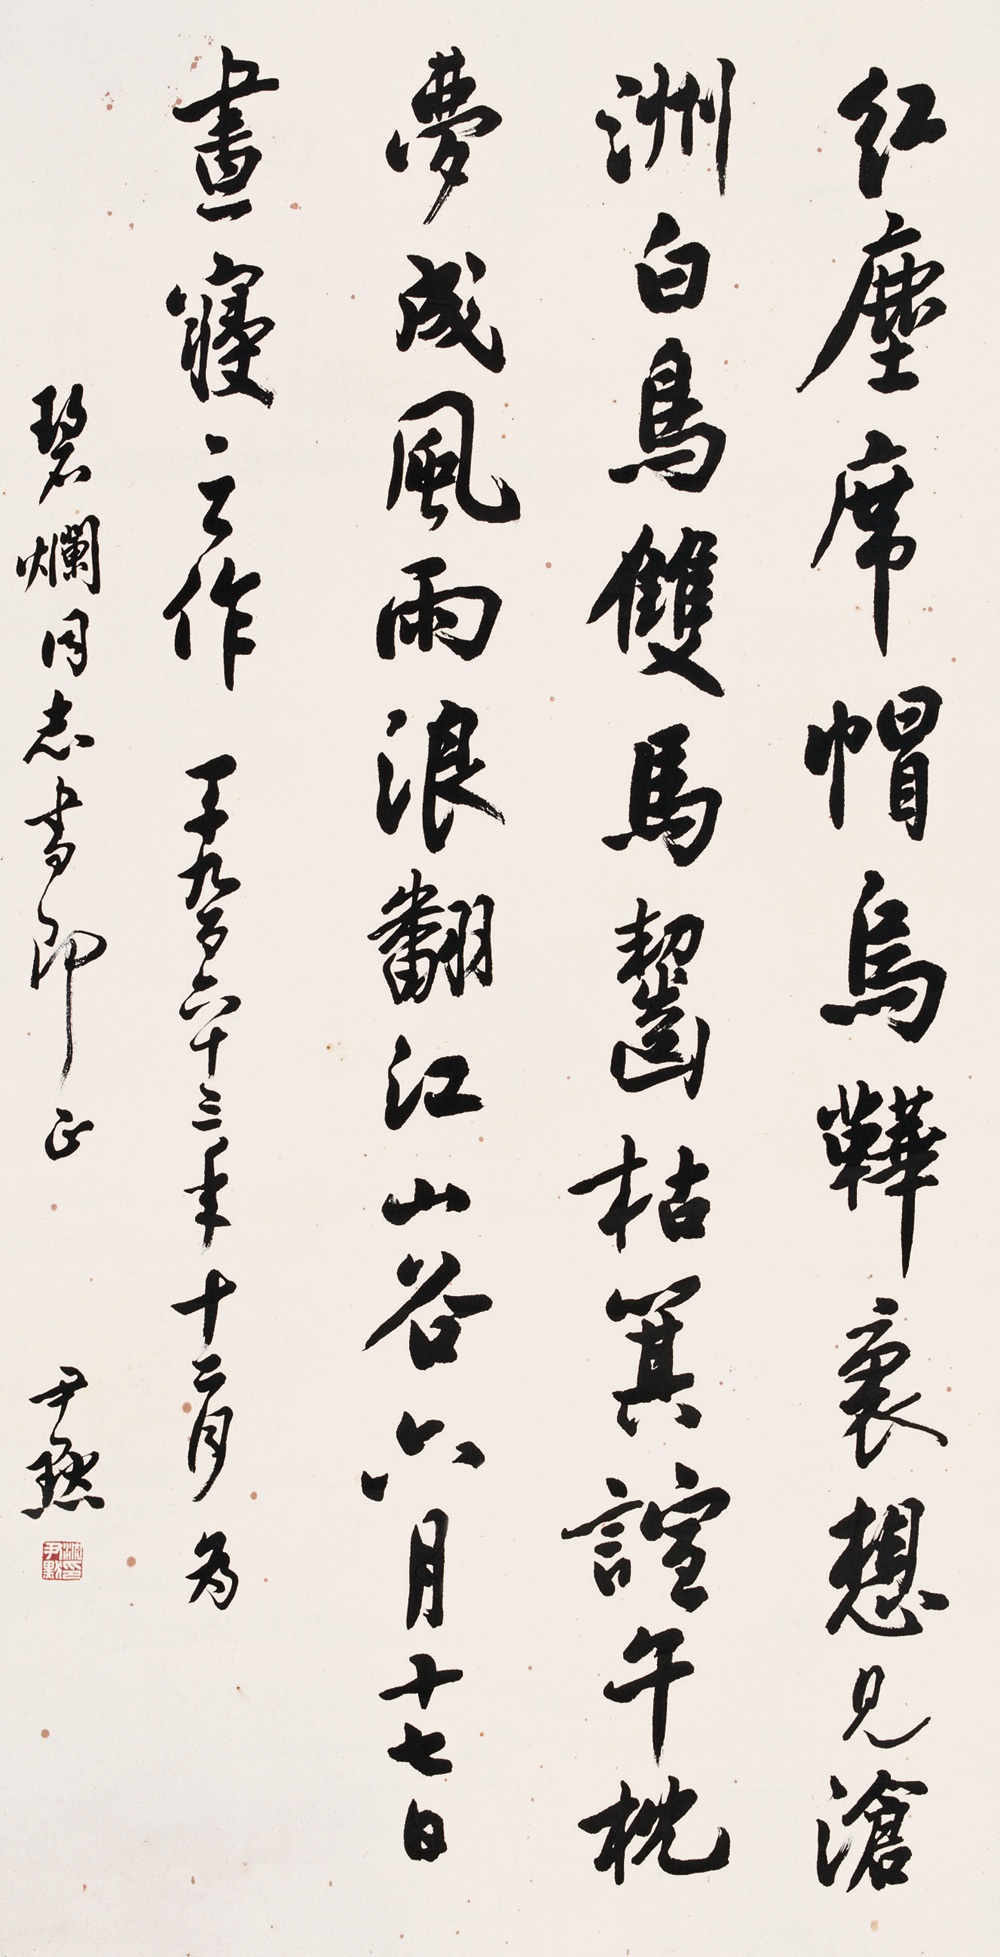 红塵席帽烏鞾裏想見滄
洲白鳥雙馬齧枯箕諠午枕
夢成風雨浪翻江山谷六月十七日
晝寢之作 一千九百六十三年十二月為
碧爛同志書即正 尹默
沈尹默印